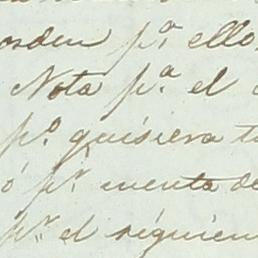 orden p.ʳ ello
Nota p.ª el
p.º quisiera
ó p.ʳ cuenta de
p.ʳ el siguien